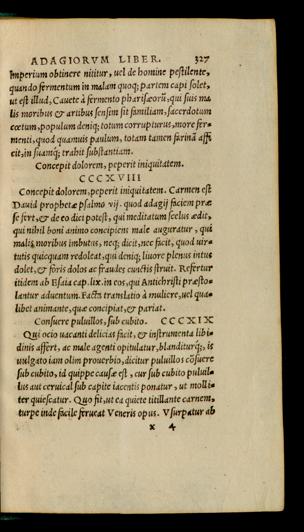 ADAGIORVM LIBER. 327
Imperium obtinere nititur, uel de homine pestilente,
quando fermentum in malam quoq; partem capi solet,
ut est illud, Cauete à fermento pharisæorũ, qui suis ma
lis moribus & artibus sensim sit familiam, sacerdotum
cœtum, populum deniq; totum corrupturus, more fer-
menti, quod quamuis paulum, totam tamen farinã affi
cit, in suamq; trahit substantiam.
Concepit dolorem, peperit iniquitatem.
CCCXVIII
Concepit dolorem, peperit iniquitatem. Carmen est
Dauid prophetæ psalmo vij. quod adagij faciem præ
se fert, & de eo dici potest, qui meditatum scelus ædit,
qui nihil boni animo concipiens male auguratur, qui
malis moribus imbutus, neq; dicit, nec facit, quod uir-
tutis quicquam redoleat, qui deniq; liuore plenus intus
dolet, & foris dolos ac fraudes cunctis struit. Refertur
itidem ab Esaia cap. lix. in eos, qui Antichristi præsto-
lantur aduentum. Facta translatio à muliere, uel qua-
libet animante, quæ concipiat, & pariat.
Consuere puluillos, sub cubito. CCCXIX
Qui ocio uacanti delicias facit, & instrumenta libi
dinis affert, ac male agenti opitulatur, blanditurq́;, is
uulgato iam olim prouerbio, dicitur puluillos cõsuere
sub cubito, id quippe causæ est, cur sub cubito puluil-
lus aut ceruical sub capite iacentis ponatur, ut molli-
ter quiescatur. Quo fit, ut ea quiete titillante carnem,
turpe inde facile ferueat Veneris opus. Vsurpatur ab
x 4